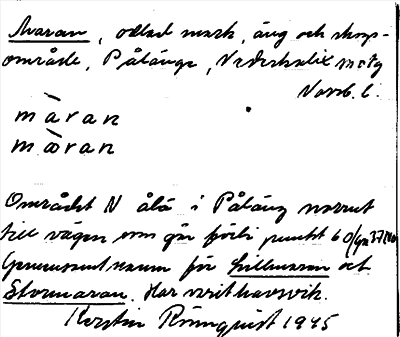 Maran, odlad mark, äng och skogs-
område, Påläng, Nederkalix sn
Norrb. l.
màran
mæ̀ran
Området N ålä i Påläng norrut
till vägen som går förbi punkt 60
Gemensamt namn för Lillmaran och
Stormaran. Har varit havsvik.
Kerstin Rönnquist 1945